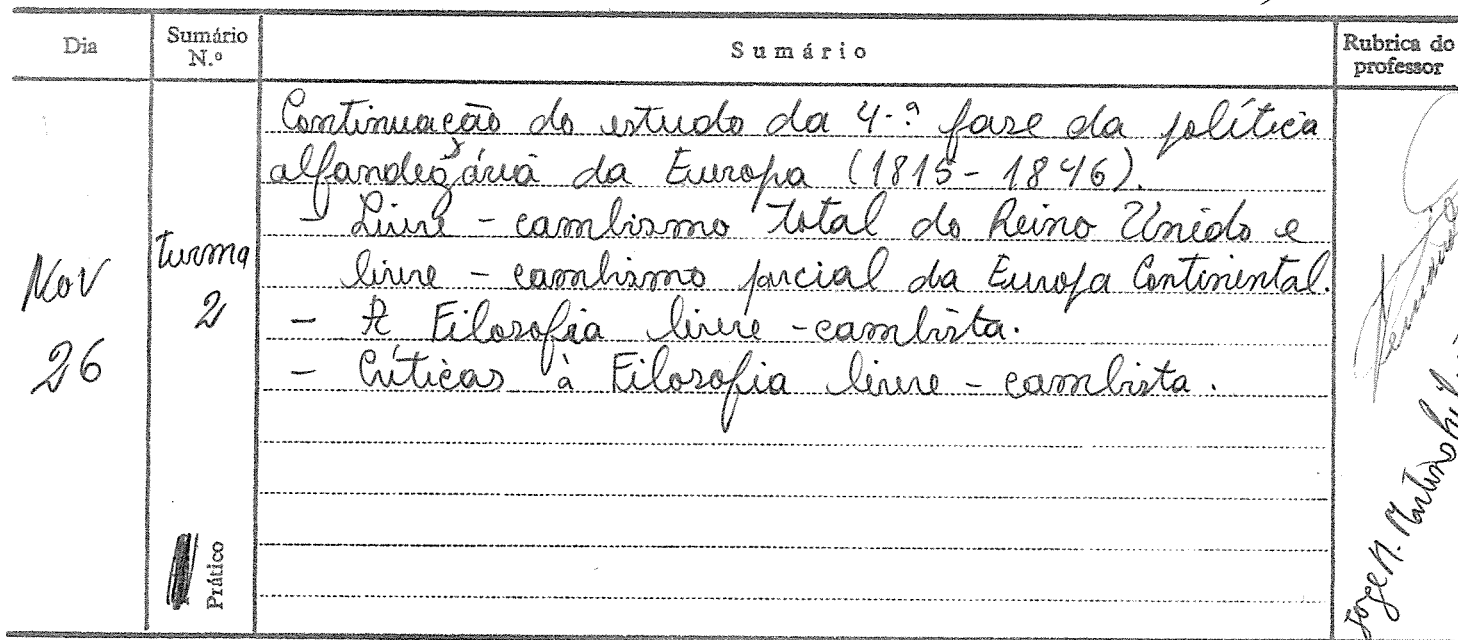 Dia Sumário N.º Sumário Rubrica do professor
Continuação do estudo da 4.ª fase da política
alfandegária da Europa (1815-1846).
- Livre-cambismo total do Reino Unido e
livre-cambismo parcial da Europa Continental.
- A Filosofia livre-cambista.
- Críticas à Filosofia livre-cambista.
Nov
26
turma
2
Prático
Jorge N.